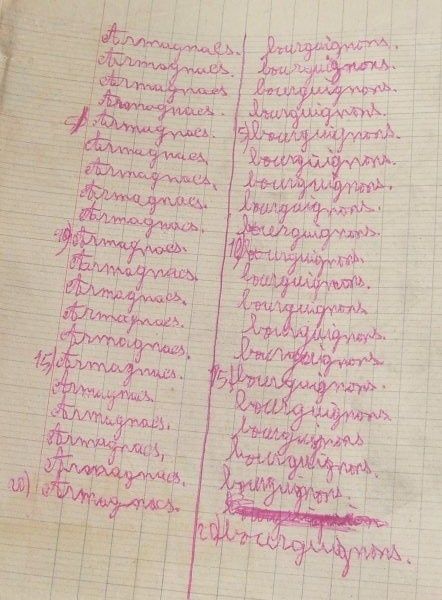 Armagnacs.
Armagnacs.
Armagnacs
Armagnacs.
5) Armagnacs.
Armagnacs,
Armagnacs.
Armagnacs.
Armagnacs.
10) Armagnacs.
Armagnacs.
Armagnacs.
Armagnacs.
Armagnacs.
15) Armagnacs.
Armagnacs.
Armagnacs.
Armagnacs,
Armagnacs.
20) Armagnacs.
bourguignons.
bourguignons.
bourguignons.
bourguignons.
5) bourguignons.
bourguignons.
bourguignons.
bourguignons.
bourguignons.
10) bourguignons.
bourguignons.
bourguignons
bourguignons.
bourguignons
15) bourguignons.
bourguignons
bourguignons
bourguignons.
bourguignons.
20) bourguignons.